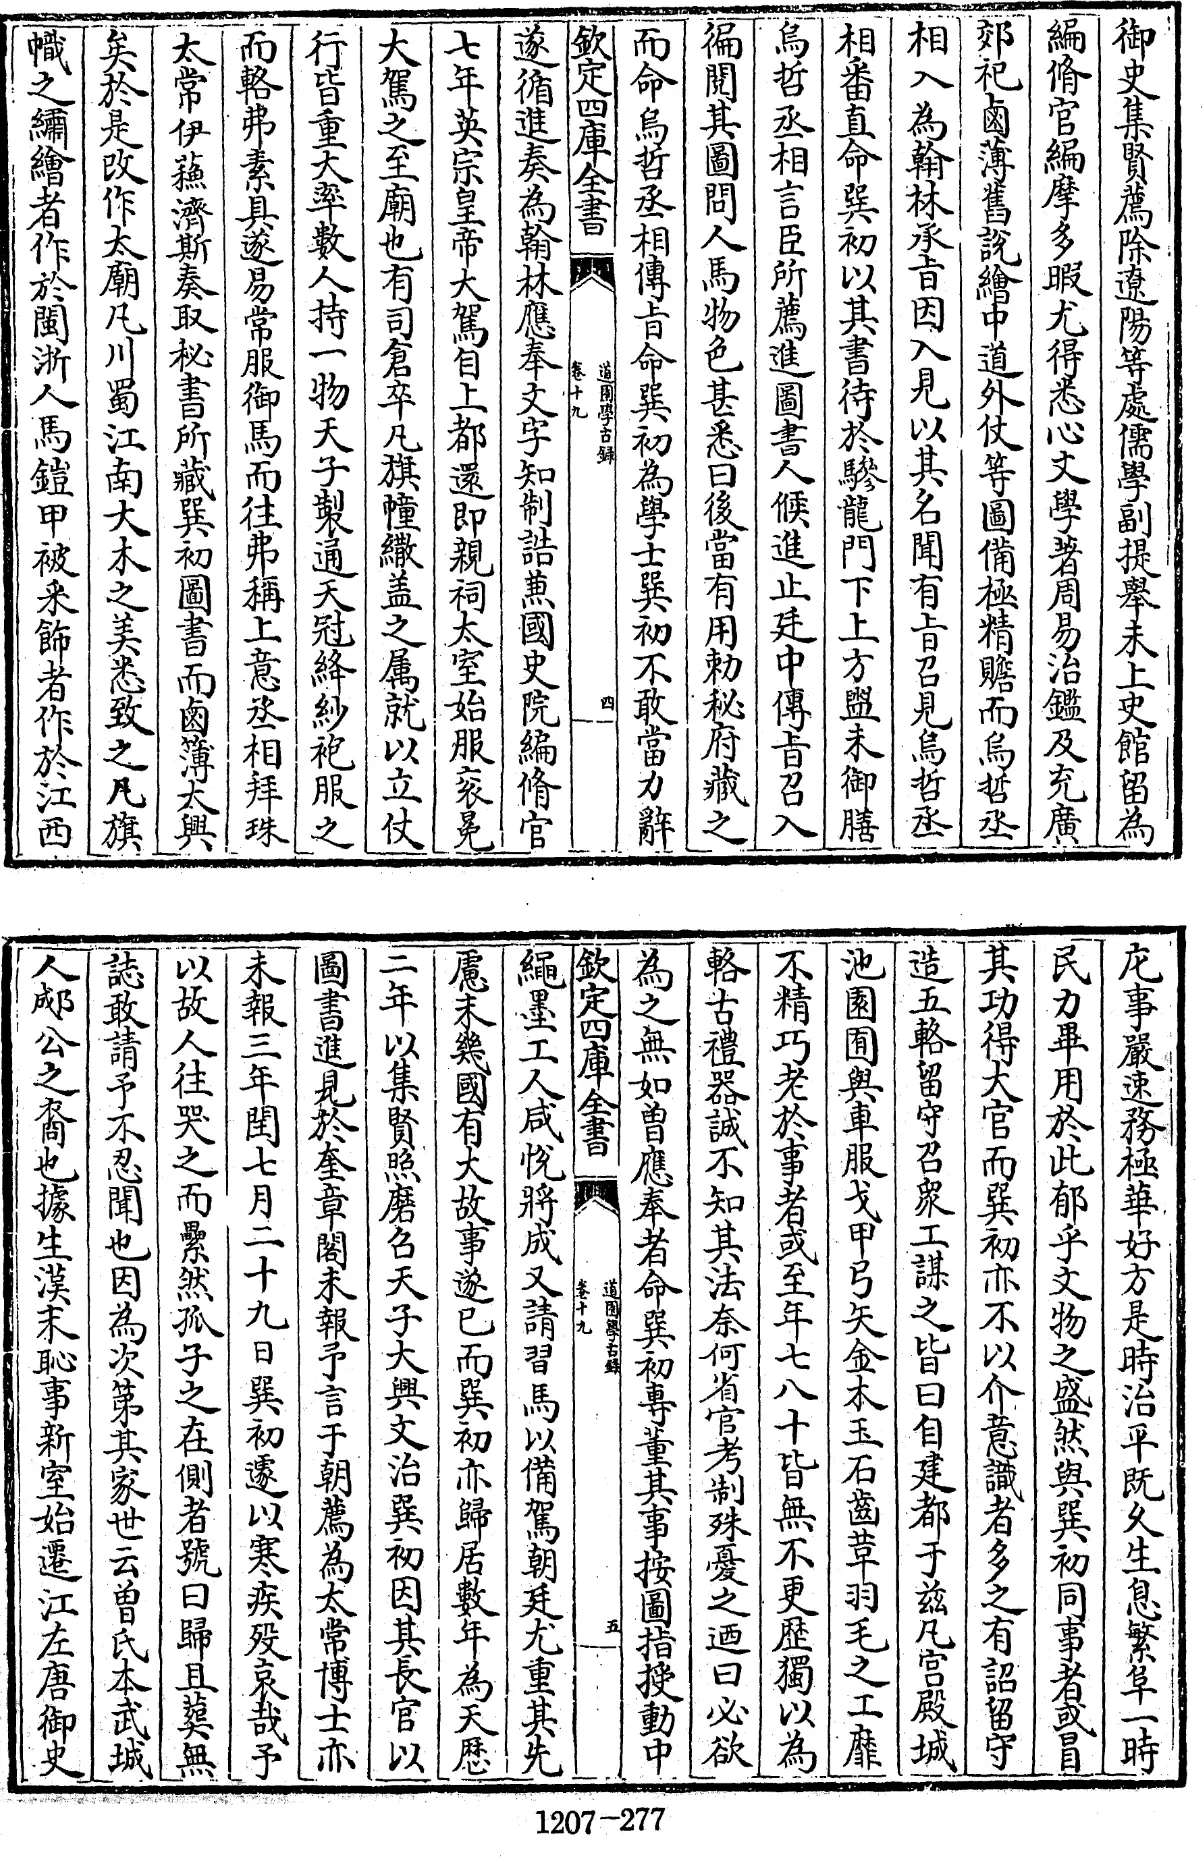 御史集賢薦除遼陽等處儒學副提舉未上史館留為
編脩官編摩多暇尤得悉心文學著周易治鑑及充廣
郊祀鹵薄舊說繪中道外仗等圖備極精贍而烏哲丞
相入為翰林承旨因入見以其名聞有旨召見烏哲丞
相番直命巽初以其書待於驂龍門下上方盥未御膳
烏哲丞相言臣所薦進圖書人候進止廷中傳旨召入
徧閱其圖問人馬物色甚悉曰後當有用勅秘府藏之
而命烏哲丞相傳旨命巽初為學士巽初不敢當力辭
欽定四庫全書
道園學古錄
卷十九
四
遂循進奏為翰林應奉文字知制誥兼國史院編脩官
七年英宗皇帝大駕自上都還即親祠太室始服衮冕
大駕之至廟也有司倉卒凡旗幢繖盖之属就以立仗
行皆重大率數人持一物天子製通天冠絳紗袍服之
而輅弗素具遂易常服御馬而往弗稱上意丞相拜珠
太常伊蘓濟斯奏取秘書所藏巽初圖書而鹵簿大興
矣於是改作太廟凡川蜀江南大木之美悉致之凡旗
幟之繡繪者作於閩浙人馬鎧甲被采飾者作於江西
庀事嚴速務極華好方是時治平既久生息繁阜一時
民力畢用於此郁乎文物之盛然與巽初同事者或冒
其功得大官而巽初亦不以介意識者多之有詔留守
造五輅留守召衆工謀之皆曰自建都于兹凡宫殿城
池園囿與車服戈甲弓矢金木玉石齒草羽毛之工靡
不精巧老於事者或至年七八十皆無不更歴獨以為
輅古禮器誠不知其法奈何省官考制殊憂之迺曰必欲
為之無如曽應奉者命巽初專董其事按圖指授動中
欽定四庫全書
道園學古錄
卷十九
五
繩墨工人咸悅將成又請習馬以備駕朝廷尤重其先
慮未幾國有大故事遂已而巽初亦歸居數年為天歴
二年以集賢照磨召天子大興文治巽初因其長官以
圖書進見於奎章閣未報予言于朝薦為太常博士亦
未報三年閏七月二十九日巽初遽以寒疾殁哀哉予
以故人往哭之而纍然孤子之在側者號曰歸且葬無
誌敢請予不忍聞也因為次第其家世云曽氏本武城
人郕公之裔也據生漢末恥事新室始遷江左唐御史
1207-277